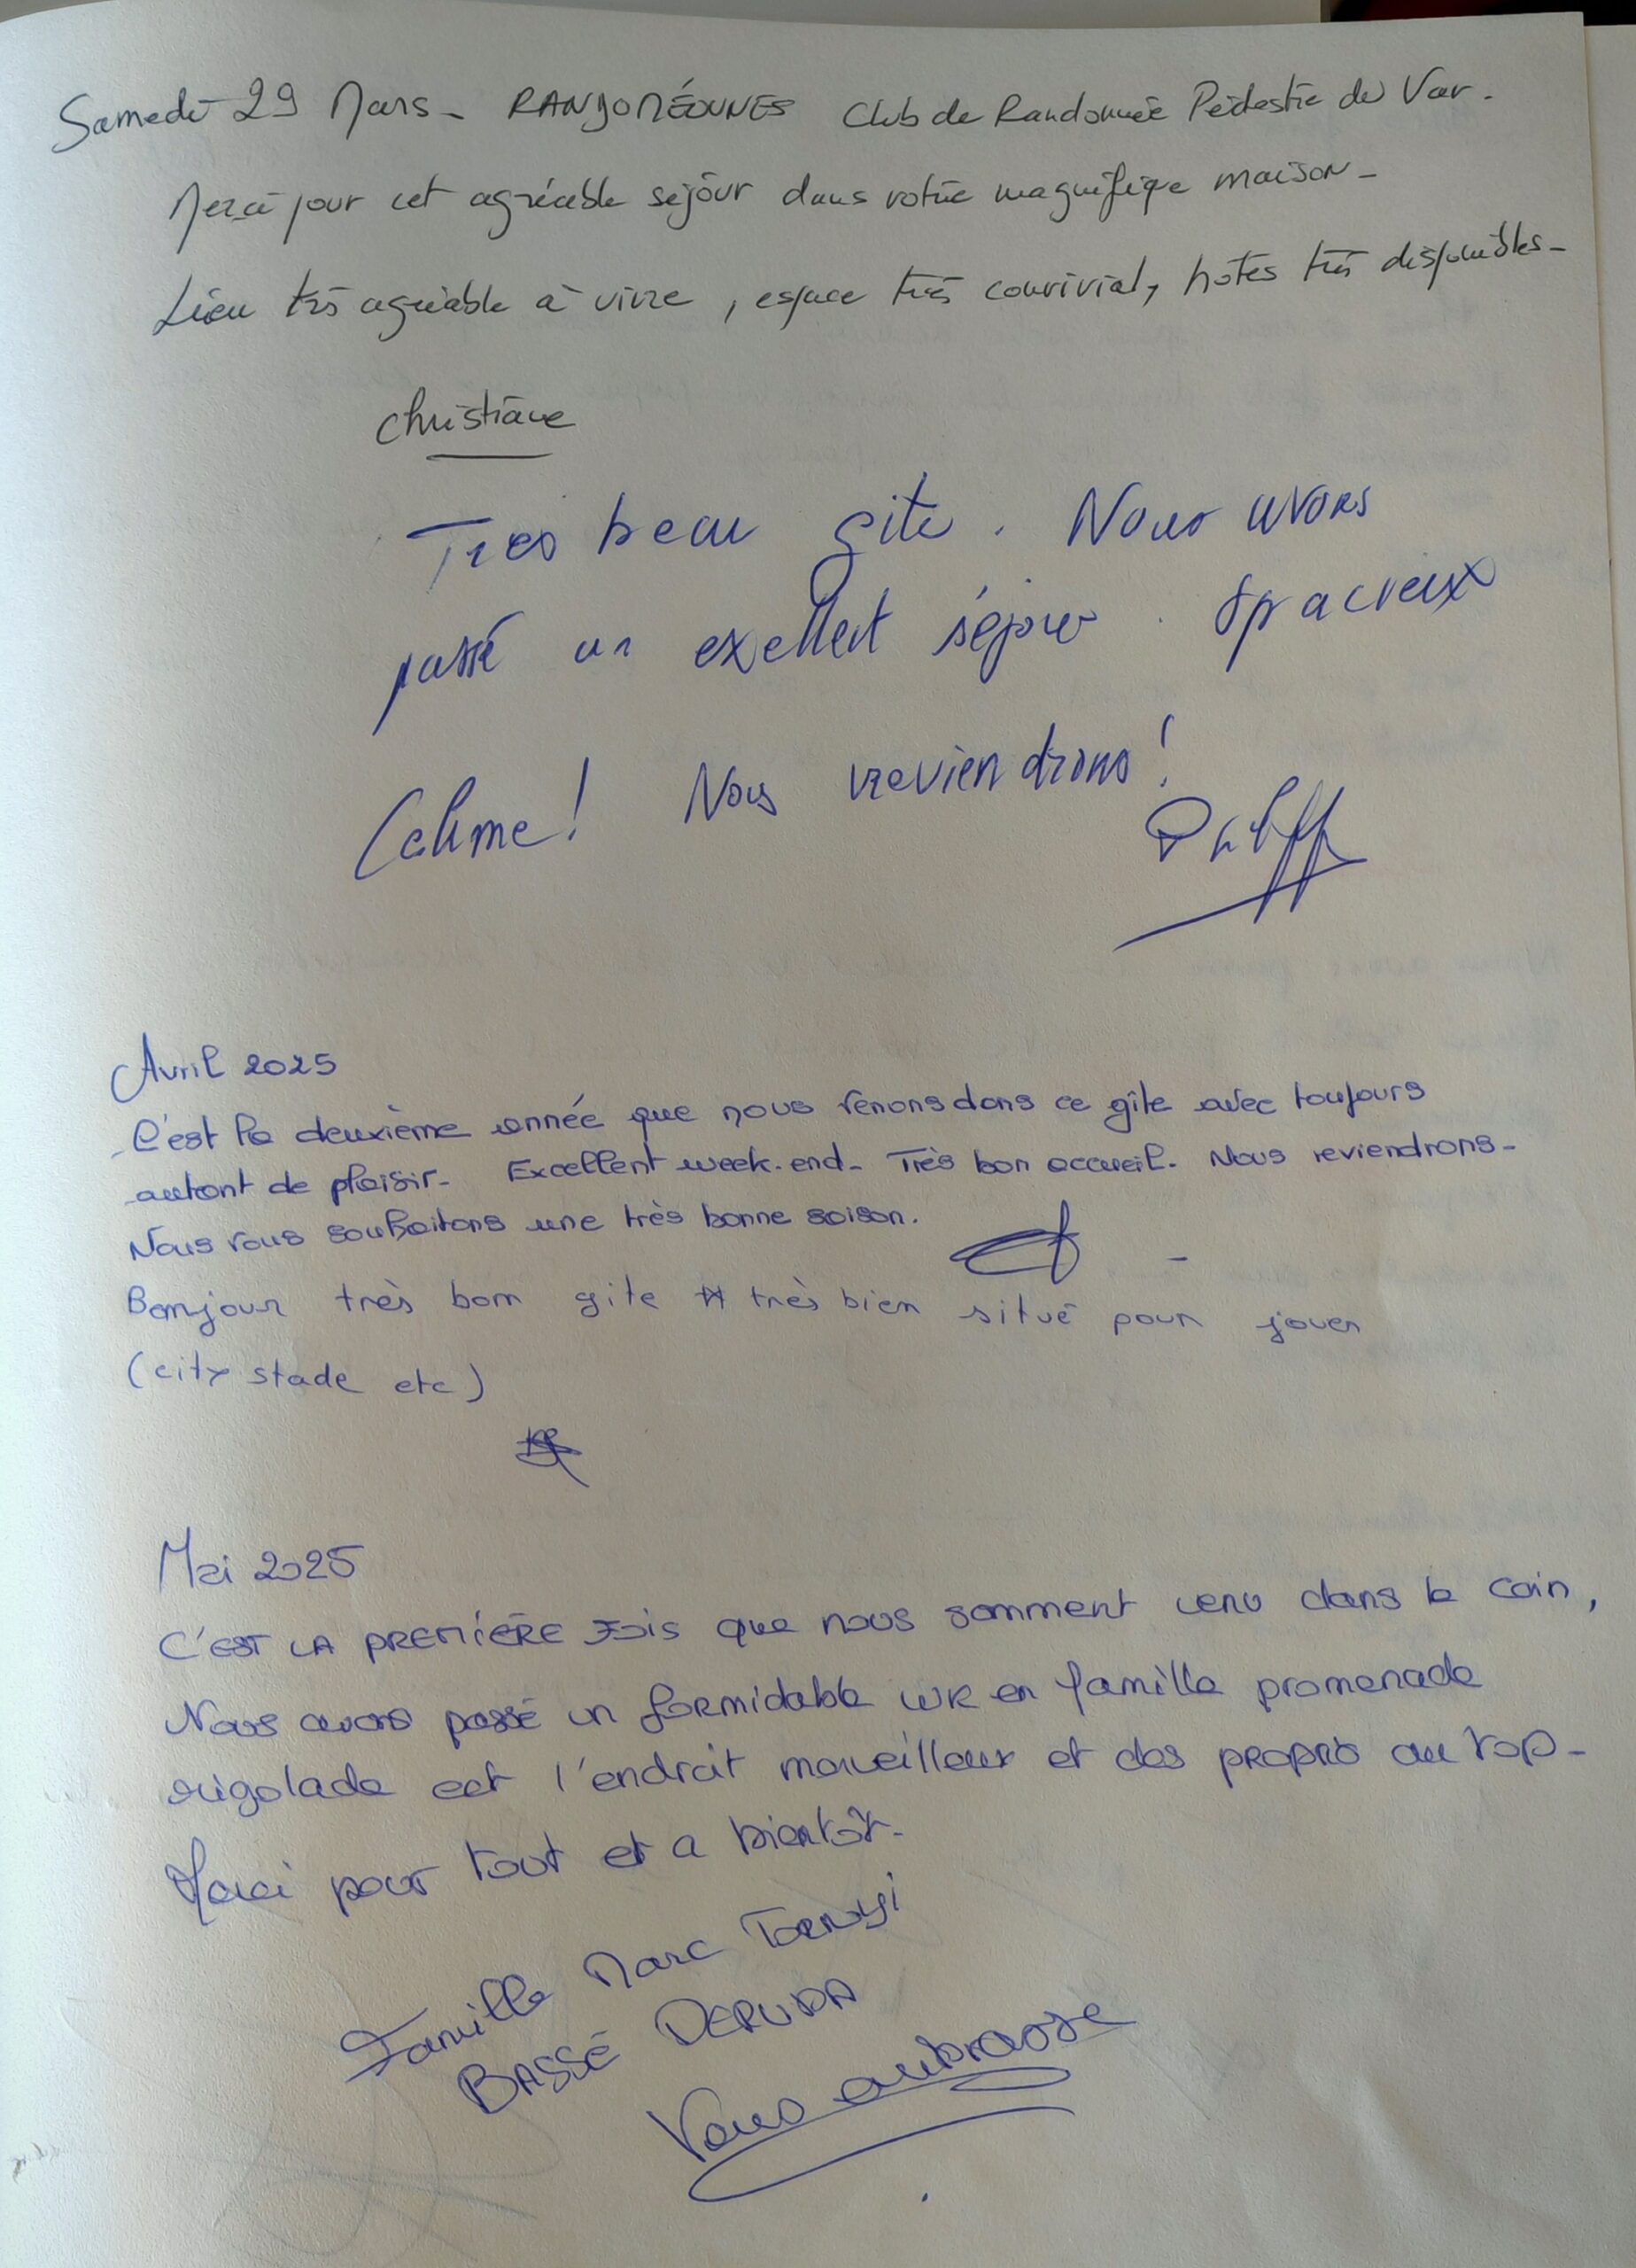 Samedi 29 Mars - RANDOMÉOUNES Club de Randonnée Pédestre du Var.
Merci pour cet agréable séjour dans votre magnifique maison -
Lieu très agréable à vivre, espace très convivial, hôtes très disponibles -
Christiane
Tres beau gite. Nous avons
passé un exellent séjour. Spacieux
Calme! Nous reviendrons!
Avril 2025
C'est la deuxième année que nous venons dans ce gîte avec toujours
autant de plaisir - Excellent week-end - Très bon accueil. Nous reviendrons -
Nous vous souhaitons une très bonne saison.
Bonjour très bon gite très bien situé pour jouer
(city stade etc)
Mai 2025
C'EST LA PREMIÈRE FOIS que nous somment venu dans le coin,
Nous avons passé un formidable WK en famille promenade
rigolade est l'endroit merveilleux et des propre au top -
Merci pour tout et a bientôt -
Famille Marc
BASSE DERUDA
Vous embrasse